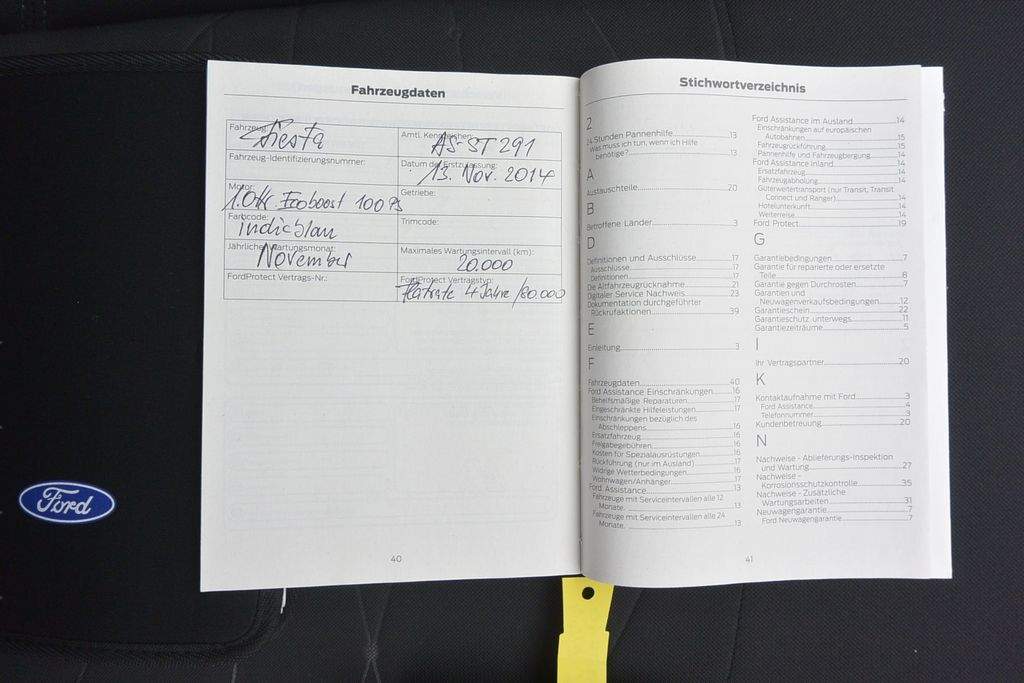 Fahrzeugdaten
Fahrzeug:
Fiesta
Amtl. Kennzeichen:
AS-ST 291
Fahrzeug-Identifizierungsnummer:
Datum der Erstzulassung:
13. Nov. 2014
Motor:
1.0ltr. Ecoboost 100 PS
Getriebe:
Farbcode:
indicblau
Trimcode:
Jährlicher Wartungsmonat:
November
Maximales Wartungsintervall (km):
20.000
FordProtect Vertrags-Nr.:
FordProtect Vertragstyp:
Flatrate 4 Jahre/80.000
40
Ford
Stichwortverzeichnis
2
24 Stunden Pannenhilfe 13
Was muss ich tun, wenn ich Hilfe
benötige? 13
A
Austauschteile 20
B
Betroffene Länder 3
D
Definitionen und Ausschlüsse 17
Ausschlüsse 17
Definitionen 17
Die Altfahrzeugrücknahme 21
Digitaler Service Nachweis 23
Dokumentation durchgeführter
Rückrufaktionen 39
E
Einleitung 3
F
Fahrzeugdaten 40
Ford Assistance Einschränkungen 16
Behelfsmäßige Reparaturen 17
Eingeschränkte Hilfeleistungen 17
Einschränkungen bezüglich des
Abschleppens 16
Ersatzfahrzeug 16
Freigabegebühren 16
Kosten für Spezialausrüstungen 16
Rückführung (nur im Ausland) 17
Widrige Wetterbedingungen 16
Wohnwagen/Anhänger 17
Ford Assistance 13
Fahrzeuge mit Serviceintervallen alle 12
Monate. 13
Fahrzeuge mit Serviceintervallen alle 24
Monate. 13
Ford Assistance im Ausland 14
Einschränkungen auf europäischen
Autobahnen 15
Fahrzeugrückführung 15
Pannenhilfe und Fahrzeugbergung 14
Ford Assistance Inland 14
Ersatzfahrzeug 14
Fahrzeugabholung 14
Güterweitertransport (nur Transit, Transit
Connect und Ranger) 14
Hotelunterkunft 14
Weiterreise 14
Ford Protect 19
G
Garantiebedingungen 7
Garantie für reparierte oder ersetzte
Teile 8
Garantie gegen Durchrosten 7
Garantien und
Neuwagenverkaufsbedingungen 12
Garantieschein 22
Garantieschutz unterwegs 11
Garantiezeiträume 5
I
Ihr Vertragspartner 20
K
Kontaktaufnahme mit Ford 3
Ford Assistance 4
Telefonnummer 3
Kundenbetreuung 20
N
Nachweise - Ablieferungs-Inspektion
und Wartung 27
Nachweise -
Korrosionsschutzkontrolle 35
Nachweise - Zusätzliche
Wartungsarbeiten 31
Neuwagengarantie 7
Ford Neuwagengarantie 7
41